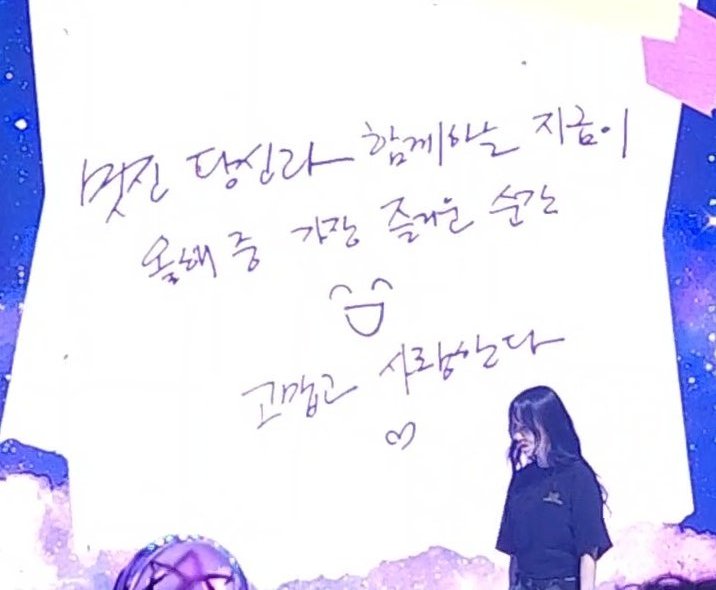 멋진 당신과 함께하는 지금이
올해 중 가장 즐거운 순간
고맙고 사랑한다